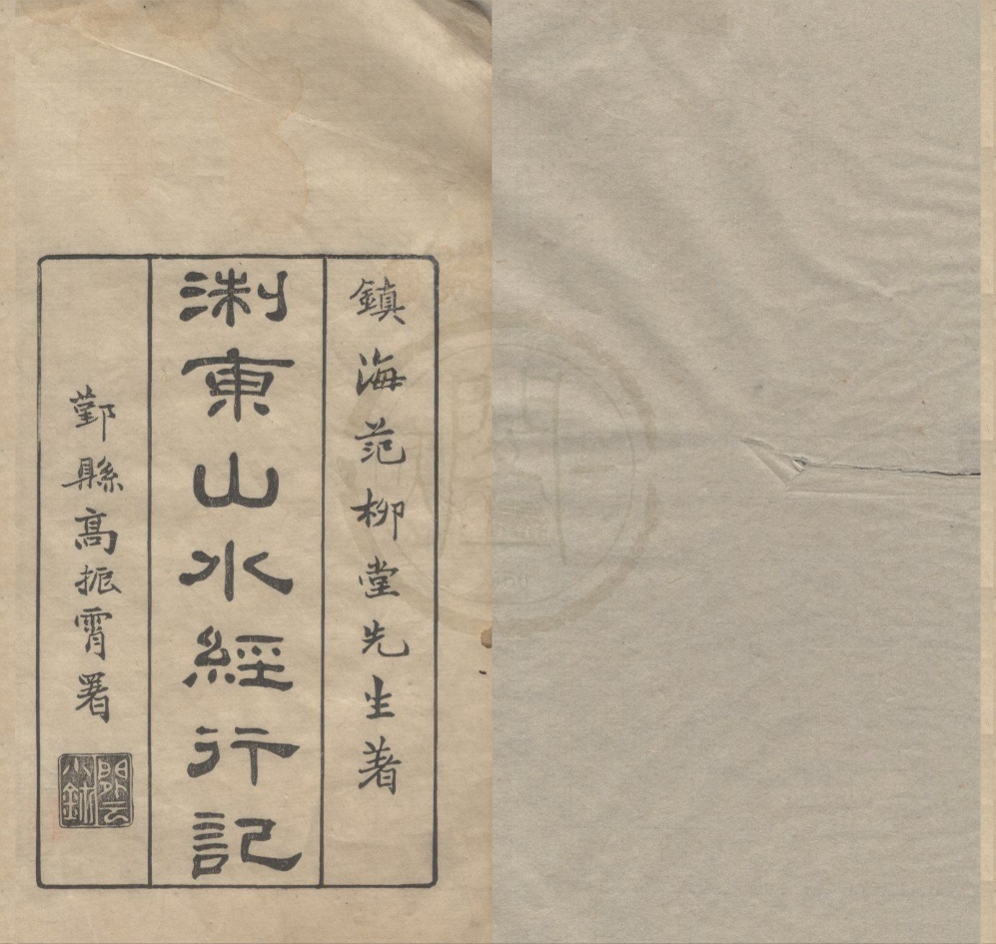 鎮海范柳堂先生著
淛東山水經行記
鄞縣高振霄署